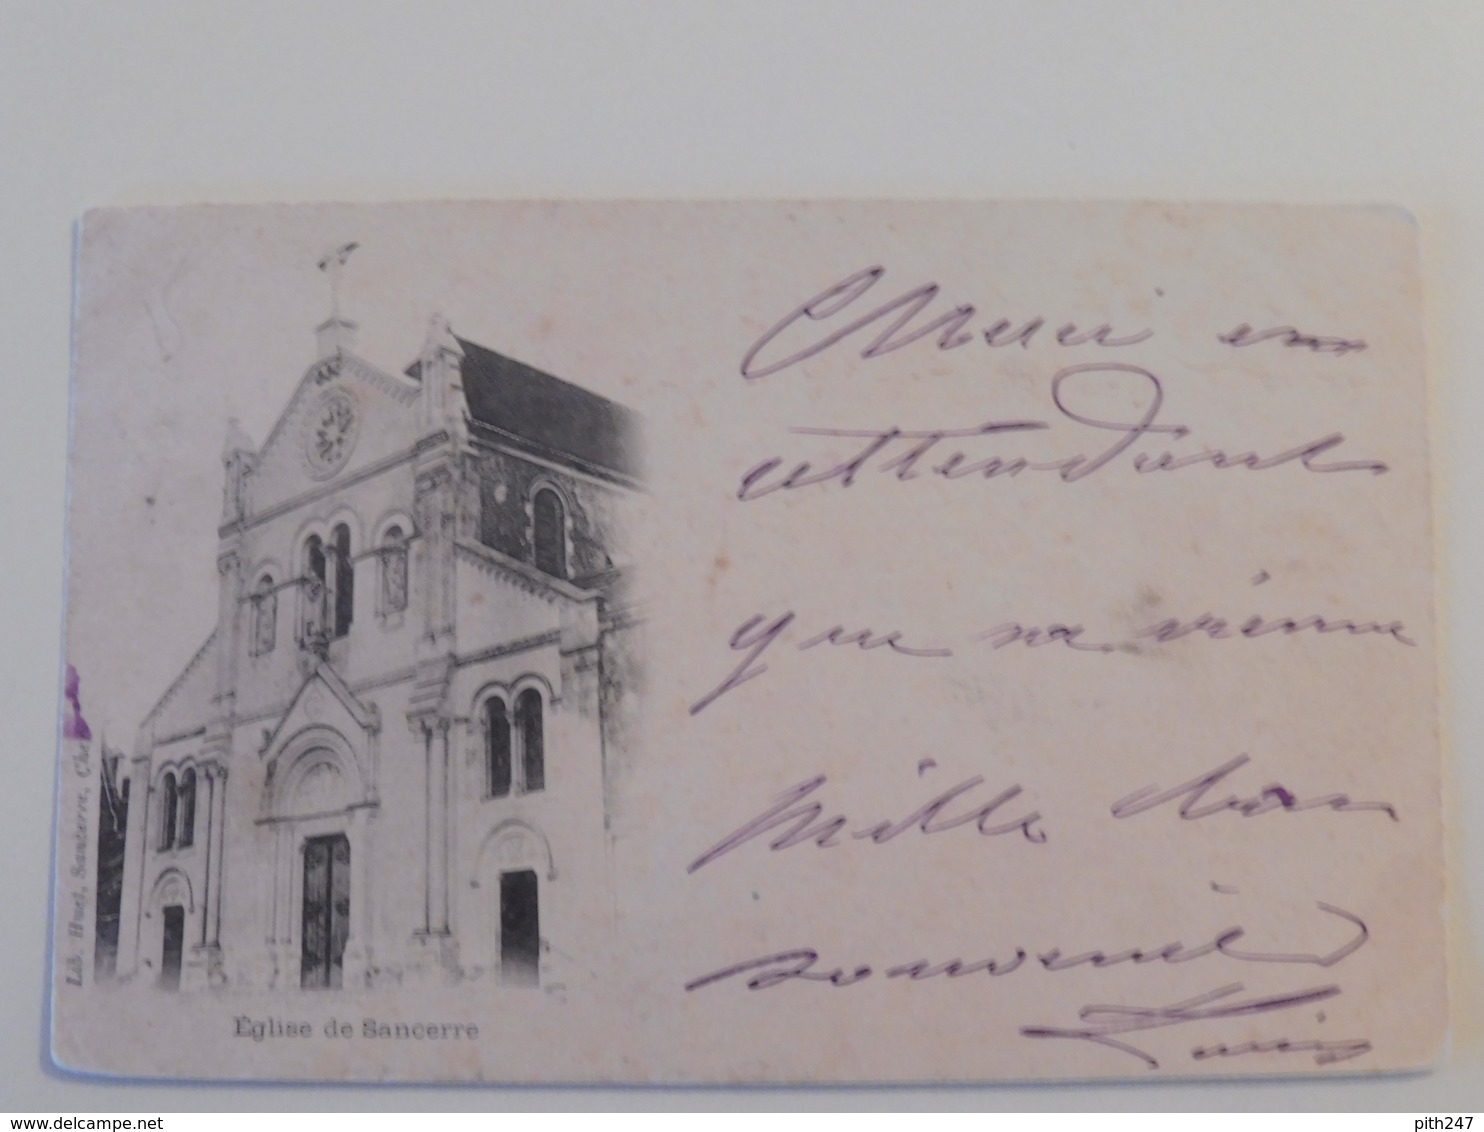 Merci en
attendant
que
mille bons
souvenirs
Lib. Huel, Sancerre, Cher
Église de Sancerre
www.delcampe.net
pith247